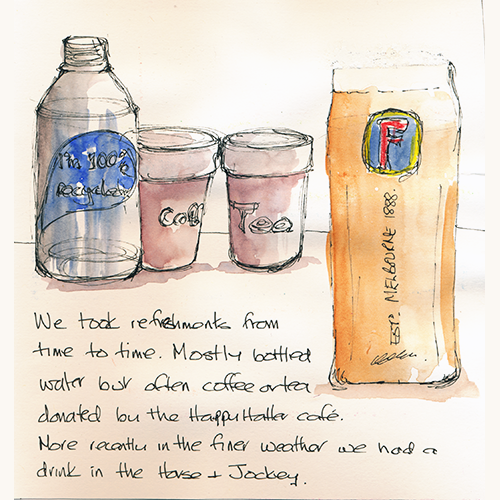 I'm 100%
recyclable
Coff
Tea
F
EST. MELBOURNE 1888.
We took refreshments from
time to time. Mostly bottled
water but often coffee or tea
donated by the Happy Hatter café.
More recently in the finer weather we had a
drink in the Horse + Jockey.